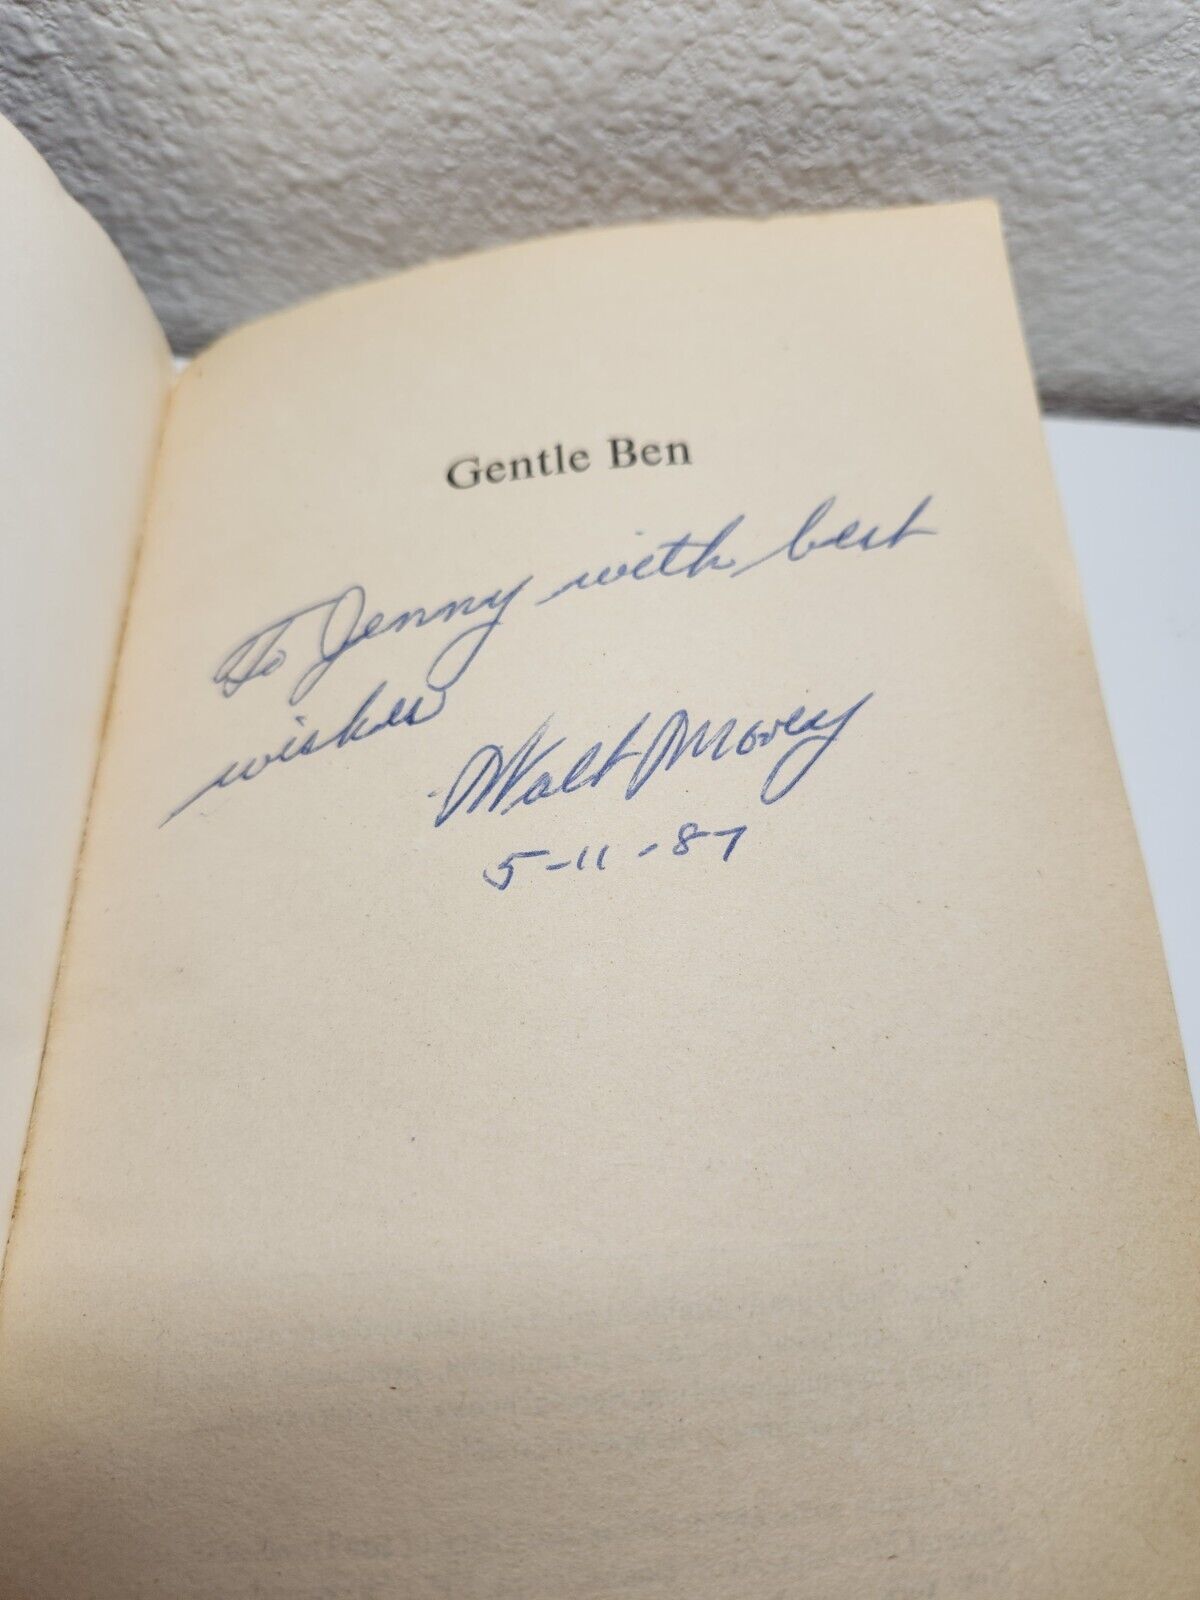 Gentle Ben
To Jenny with best
wishes
Walt Morey
5-11-87